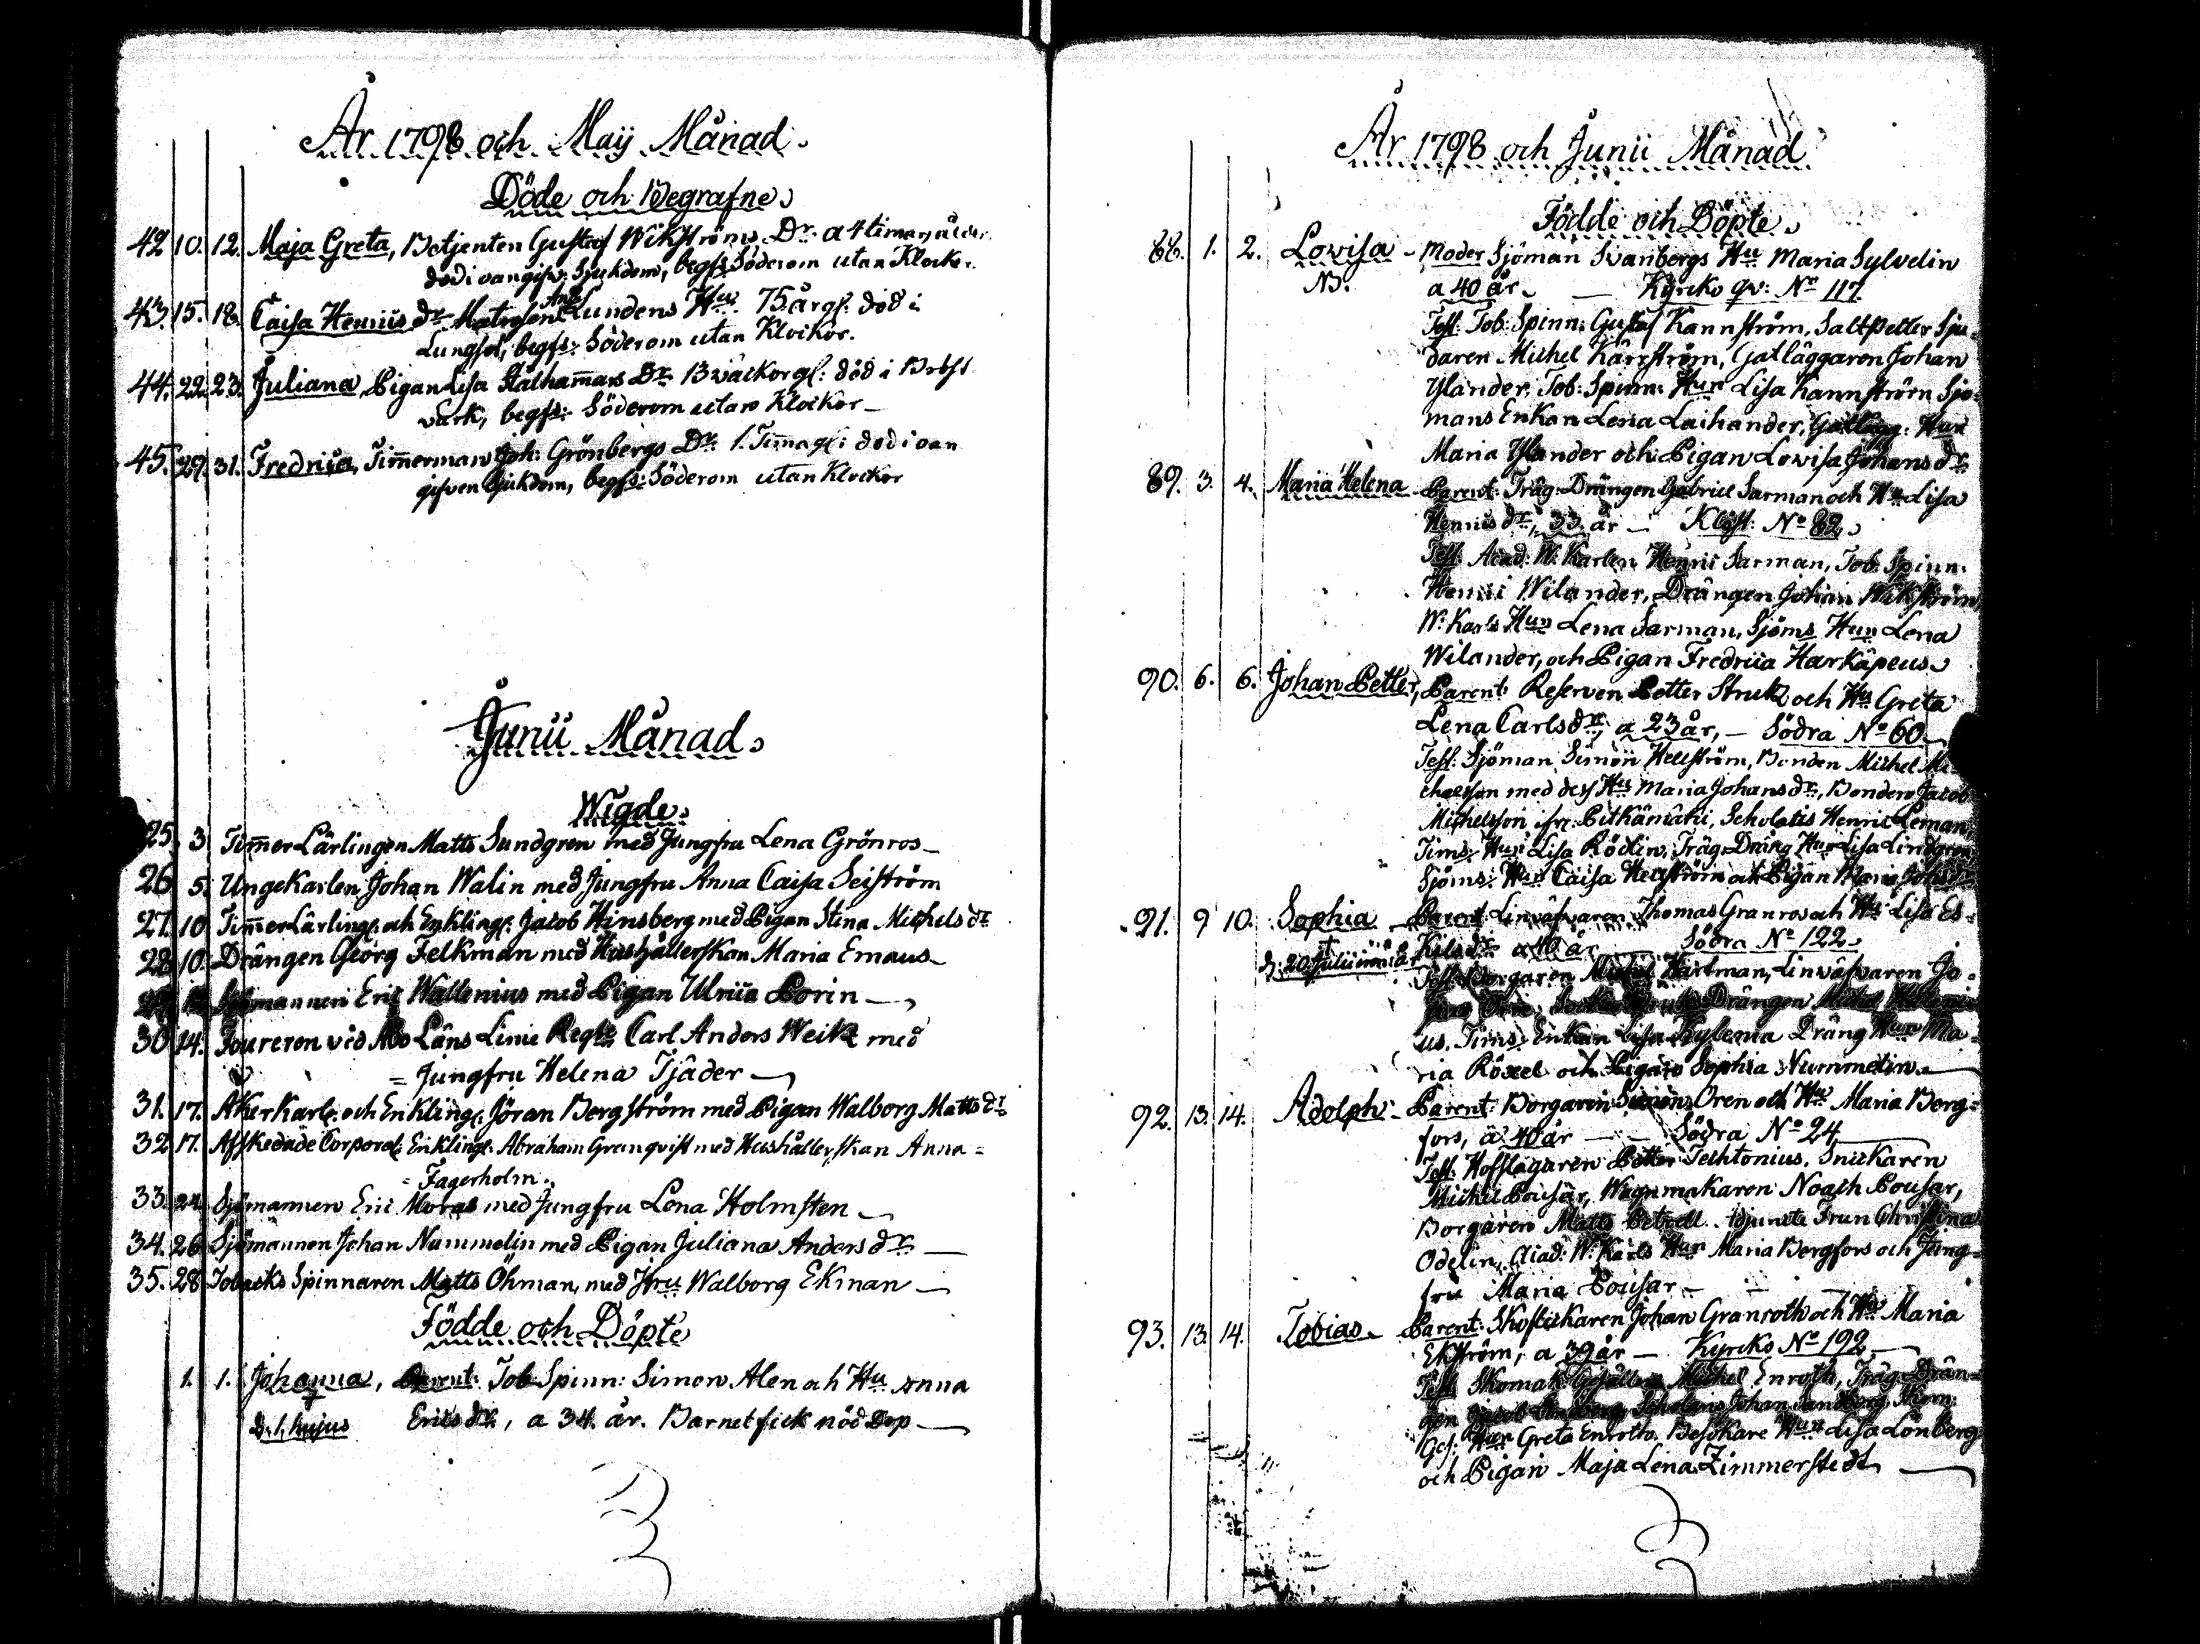 År 1798 och Maij Månad.
Döde och Begrafne.
42 10. 12. Maja Greta, Betjenten Gustaf Wikströms Dr. a 4 timars ålder
död i oangifv: Sjukdom, begfs Söderom utan Klockor.
43. 15. 18. Caisa Henrics dr Matrosen And: Lundens Hu. 75 årgl: död i
Lungsot, begfs: Söderom utan Klockor.
44. 22. 23. Juliana Pigan Lisa Stålham̄ars Dr. 13 wäckorgl: död i Bröst
värk, begfs: Söderom utan Klockor —
45. 29. 31. Fredrica, Tim̄erman Joh: Grönbergs Dr. 1. Tim̄agl: död i oan
gifven Sjukdom, begfs: Söderom utan Klockor
Junii Månad.
Wigde.
25 3 Tim̄er Lärlingen Matts Sundgren med Jungfru Lena Grönros —
26 5. Ungekarlen Johan Walin med Jungfru Anna Caisa Seiström
27. 10 Tim̄er Lärlingen och Enkling: Jacob Hinsberg med Pigan Stina Michels dr
28 10. Drängen Georg Felkman med Hushållerskan Maria Emaus —
Sjömannen Eric Wallenius med Pigan Ulrica Borin —
30 14. Foureren vid Åbo Läns Linie Regte Carl Anders Weik med
= Jungfru Helena Tjäder —
31. 17. Åkerkarlen och Enkling: Jöran Bergström med Pigan Walborg Matts dr
32 17. Afskedade Corporal: Enkling: Abraham Grenqvist med Hushållerskan Anna =
= Fagerholm.
33. 24. Sjömannen Eric Moras med Jungfru Lena Holmsten —
34. 26 Sjömannen Johan Nummelin med Pigan Juliana Anders dr —
35. 28 Tobacks Spinnaren Matts Öhman, med Hru Walborg Ekman —
Födde och Döpte
1. 1. Johanna, Parent: Tob: Spinn: Simon Alen och Hu Anna
d. 1. hujus Erics dr, a 34. år. Barnet fick nöd Dop —
År 1798 och Junii Månad
Födde och Döpte.
88. 1. 2. Lovisa — Moder Sjöman Svanbergs Hu Maria Sylvelin
NB. a 40 år. — Kyrcko qv: No 117.
Test: Tob: Spinn: Gustaf Kannström, Saltpetter Sju-
daren Michel Kärrström, Gatläggaren Johan
Ylander, Tob: Spinn: Hun Lisa Kannström Sjö-
mans Enkan Lena Laihander, Gatlägg: Hun
Maria Ylander och Pigan Lovisa Johans dr
89. 3. 4. Maria Helena Parent: Träg: Drängen Gabriel Sarman och Hu Lisa
Henrics dr, 33. år — Klöst: No 82.
Test: Acad: W: Karlen Henric Sarman, Tob: Spinn:
Henric Wilander, Drängen Johan Wikström
W: Karls Hun Lena Sarman, Sjöms Hun Lena
Wilander, och Pigan Fredrica Harkäpeus.
90. 6. 6. Johan Petter, Parent: Reserven Petter Struk och Hu Greta
Lena Carls dr, a 23 år, — Södra No 60 —
Test: Sjöman Simon Hellström, Bonden Michel Mi
chelsson med dess Hu Maria Johans dr, Bonden Jacob
Michelsson ifr: Pitkämäki, Scholaris Henric Leman
Tims: Hun Lisa Rödlin, Träg: Dräng Hun Lisa Lindgren
Sjöms: Hun Caisa Hellström och Pigan Maria Johs dr
91. 9 10. Sophia — Parent: Linväfvaren Thomas Granros och Hu Lisa Es-
d: 20 Julii kils dr a 40 år — Södra No 122.
Test: Borgaren Michel Hartman, Linväfvaren Jo-
Drängen Michel
us, Tims: Enkan Lisa Dräng Hun Ma-
ria Röxel och Pigan Sophia Nummelin. —
92. 13. 14. Adolph — Parent: Borgaren Simon Oren och Hu Maria Berg-
fors, a 40 år — Södra No 24 —
Test: Hofslagaren Petter Techtonius, Snickaren
Michel Pousar, Wagnmakaren Noach Pousar,
Borgaren Matts Petrell. Adjuncts Frun Christina
Odelin, Acad: W: Karls Hun Maria Bergfors och Jung-
fru Maria Pousar —
93. 13. 14. Tobias — Parent: Skoflickaren Johan Granroth och Hu Maria
Ekström, a 39 år — Kyrcko No 192 —
Test: Skomak: Gesällen Michel Enroth, Träg: Drän-
gen Jacob Scholaris Johan Sandberg, Skom:
Ges: Hun Greta Enroth. Besökare Hun Lisa Lönberg
och Pigan Maja Lena Zimmerstedt —